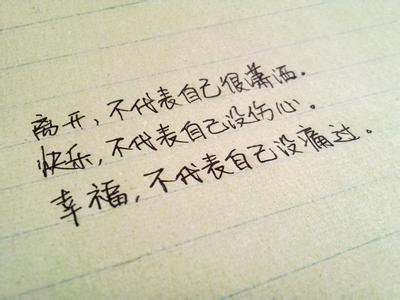 离开，不代表自己很潇洒。
快乐，不代表自己没伤心。
幸福，不代表自己没痛过。